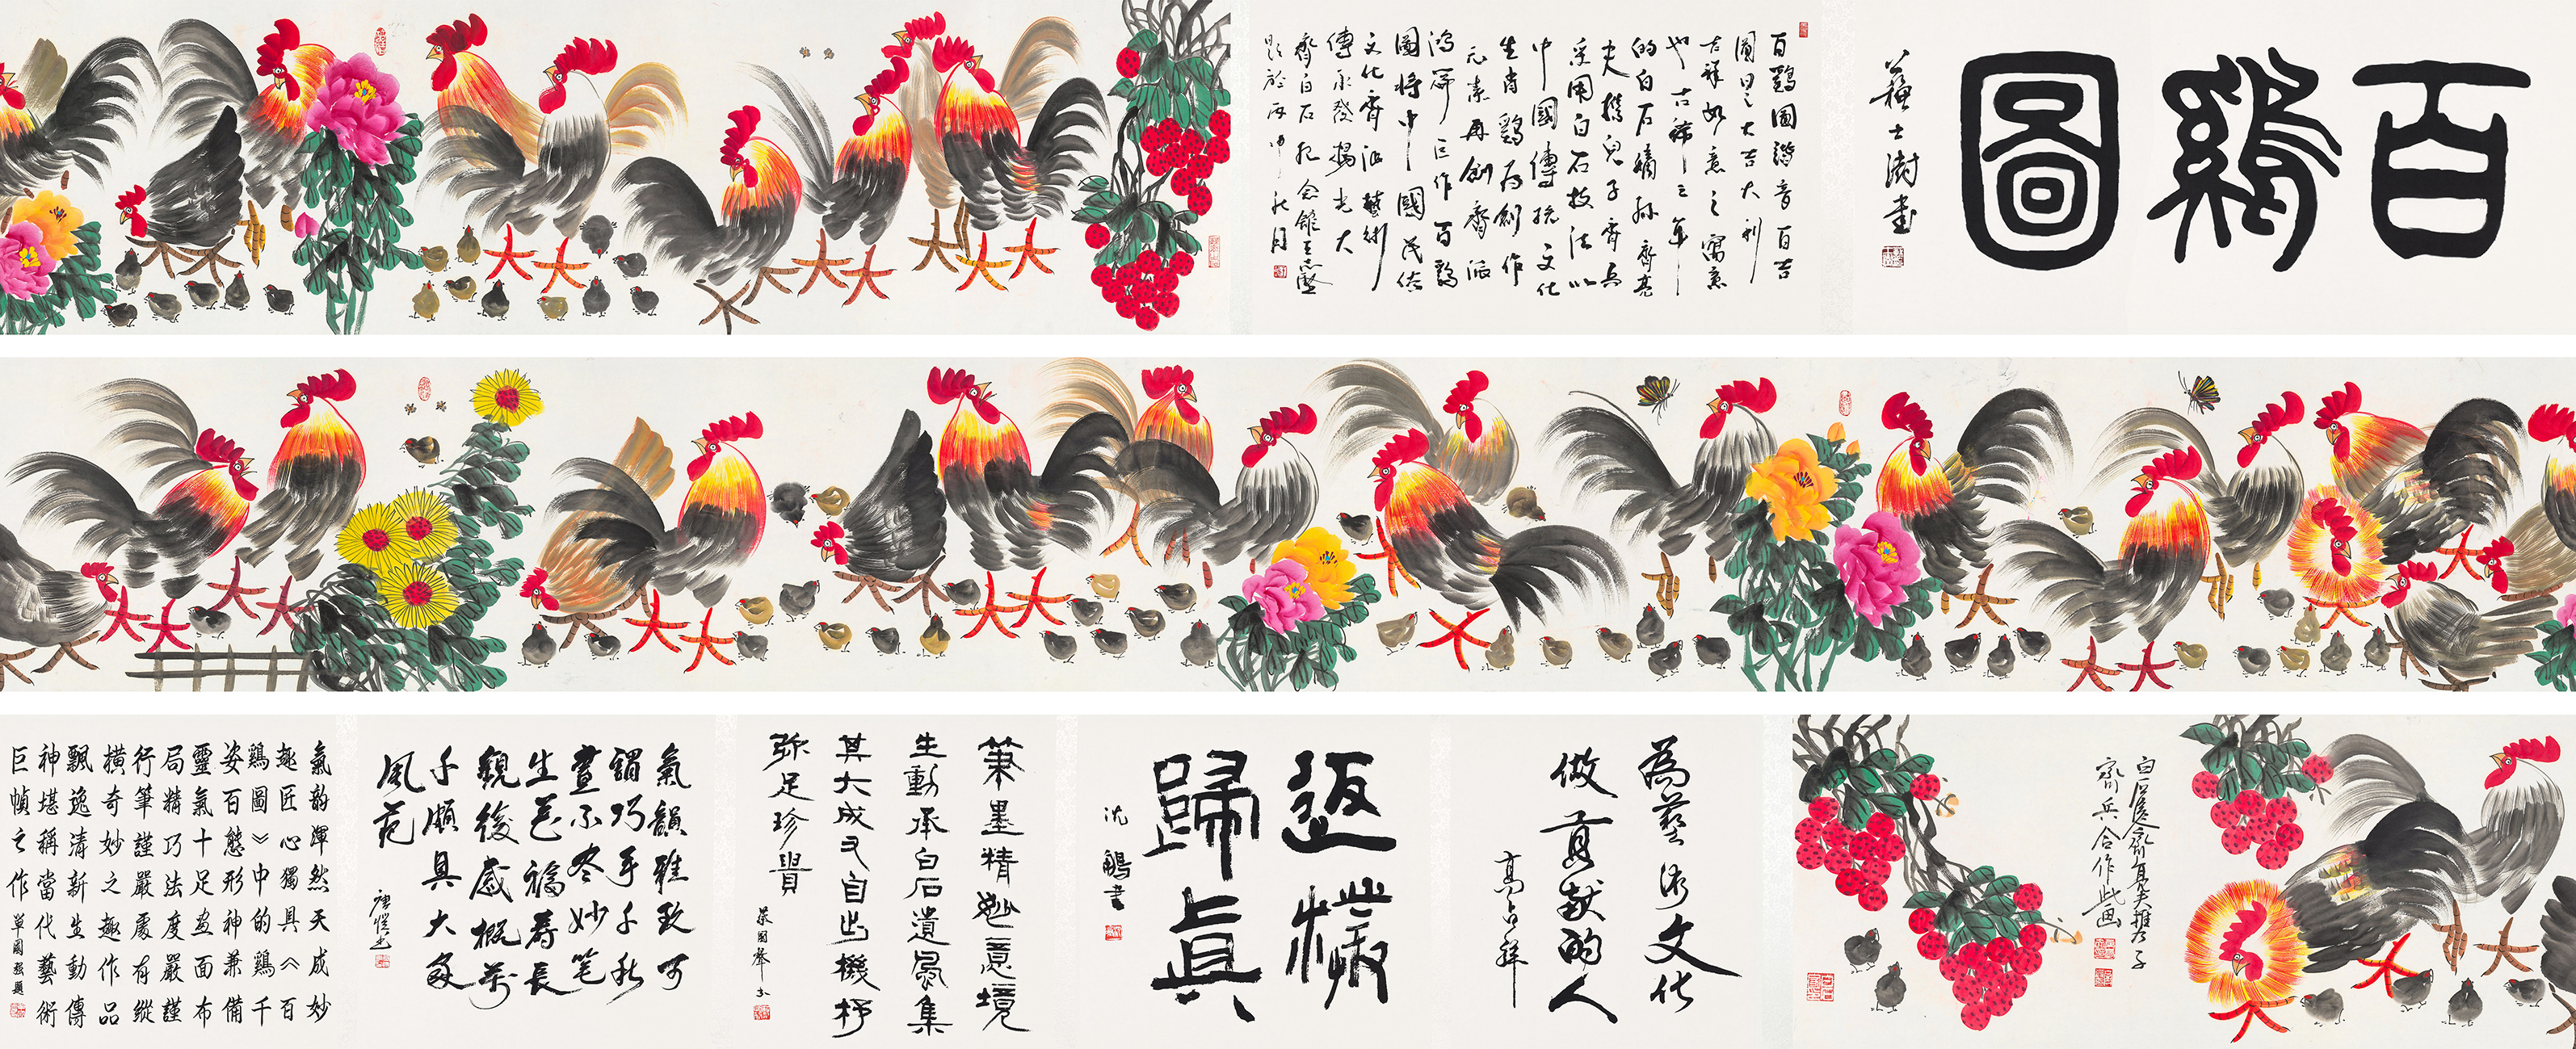 百鷄圖
蘇士澍書
百鷄圖諧音百吉
圖曰之大吉大利
吉祥如意之寓意
也古稀之年
的白石嫡孫齊
夫携兒子齊兵
采用白石技法以
中國傳統文化
生肖鷄為創作
元素再創齊派
鴻篇巨作百鷄
圖將中國民俗
文化齊派藝術
傳承發揚光大
齊白石紀念館王志堅
題於丙申秋月
白石后裔齊夫携子
齊兵合作此画
為藝術文化
做貢獻的人
高占祥
返樸
歸真
沈鵬書
筆墨精妙意境
生動承白石遺風集
其大成又自出機杼
弥足珍貴
蔡國聲书
氣韻雅致可
謂巧手千秋
畫不冬妙笔
生花福壽長
觀後感概萬
千頗具大家
風范
氣韵渾然天成妙
趣匠心獨具《百
鷄圖》中的鷄千
姿百態形神兼備
靈氣十足画面布
局精巧法度嚴謹
行筆謹嚴處有縱
橫奇妙之趣作品
飄逸清新生動傳
神堪稱當代藝術
巨幀之作 單國強題